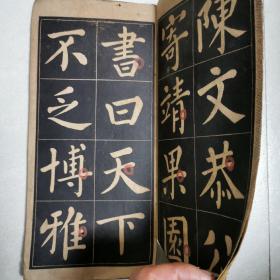 陳文恭公
寄靖果園
書曰天下
不乏博雅